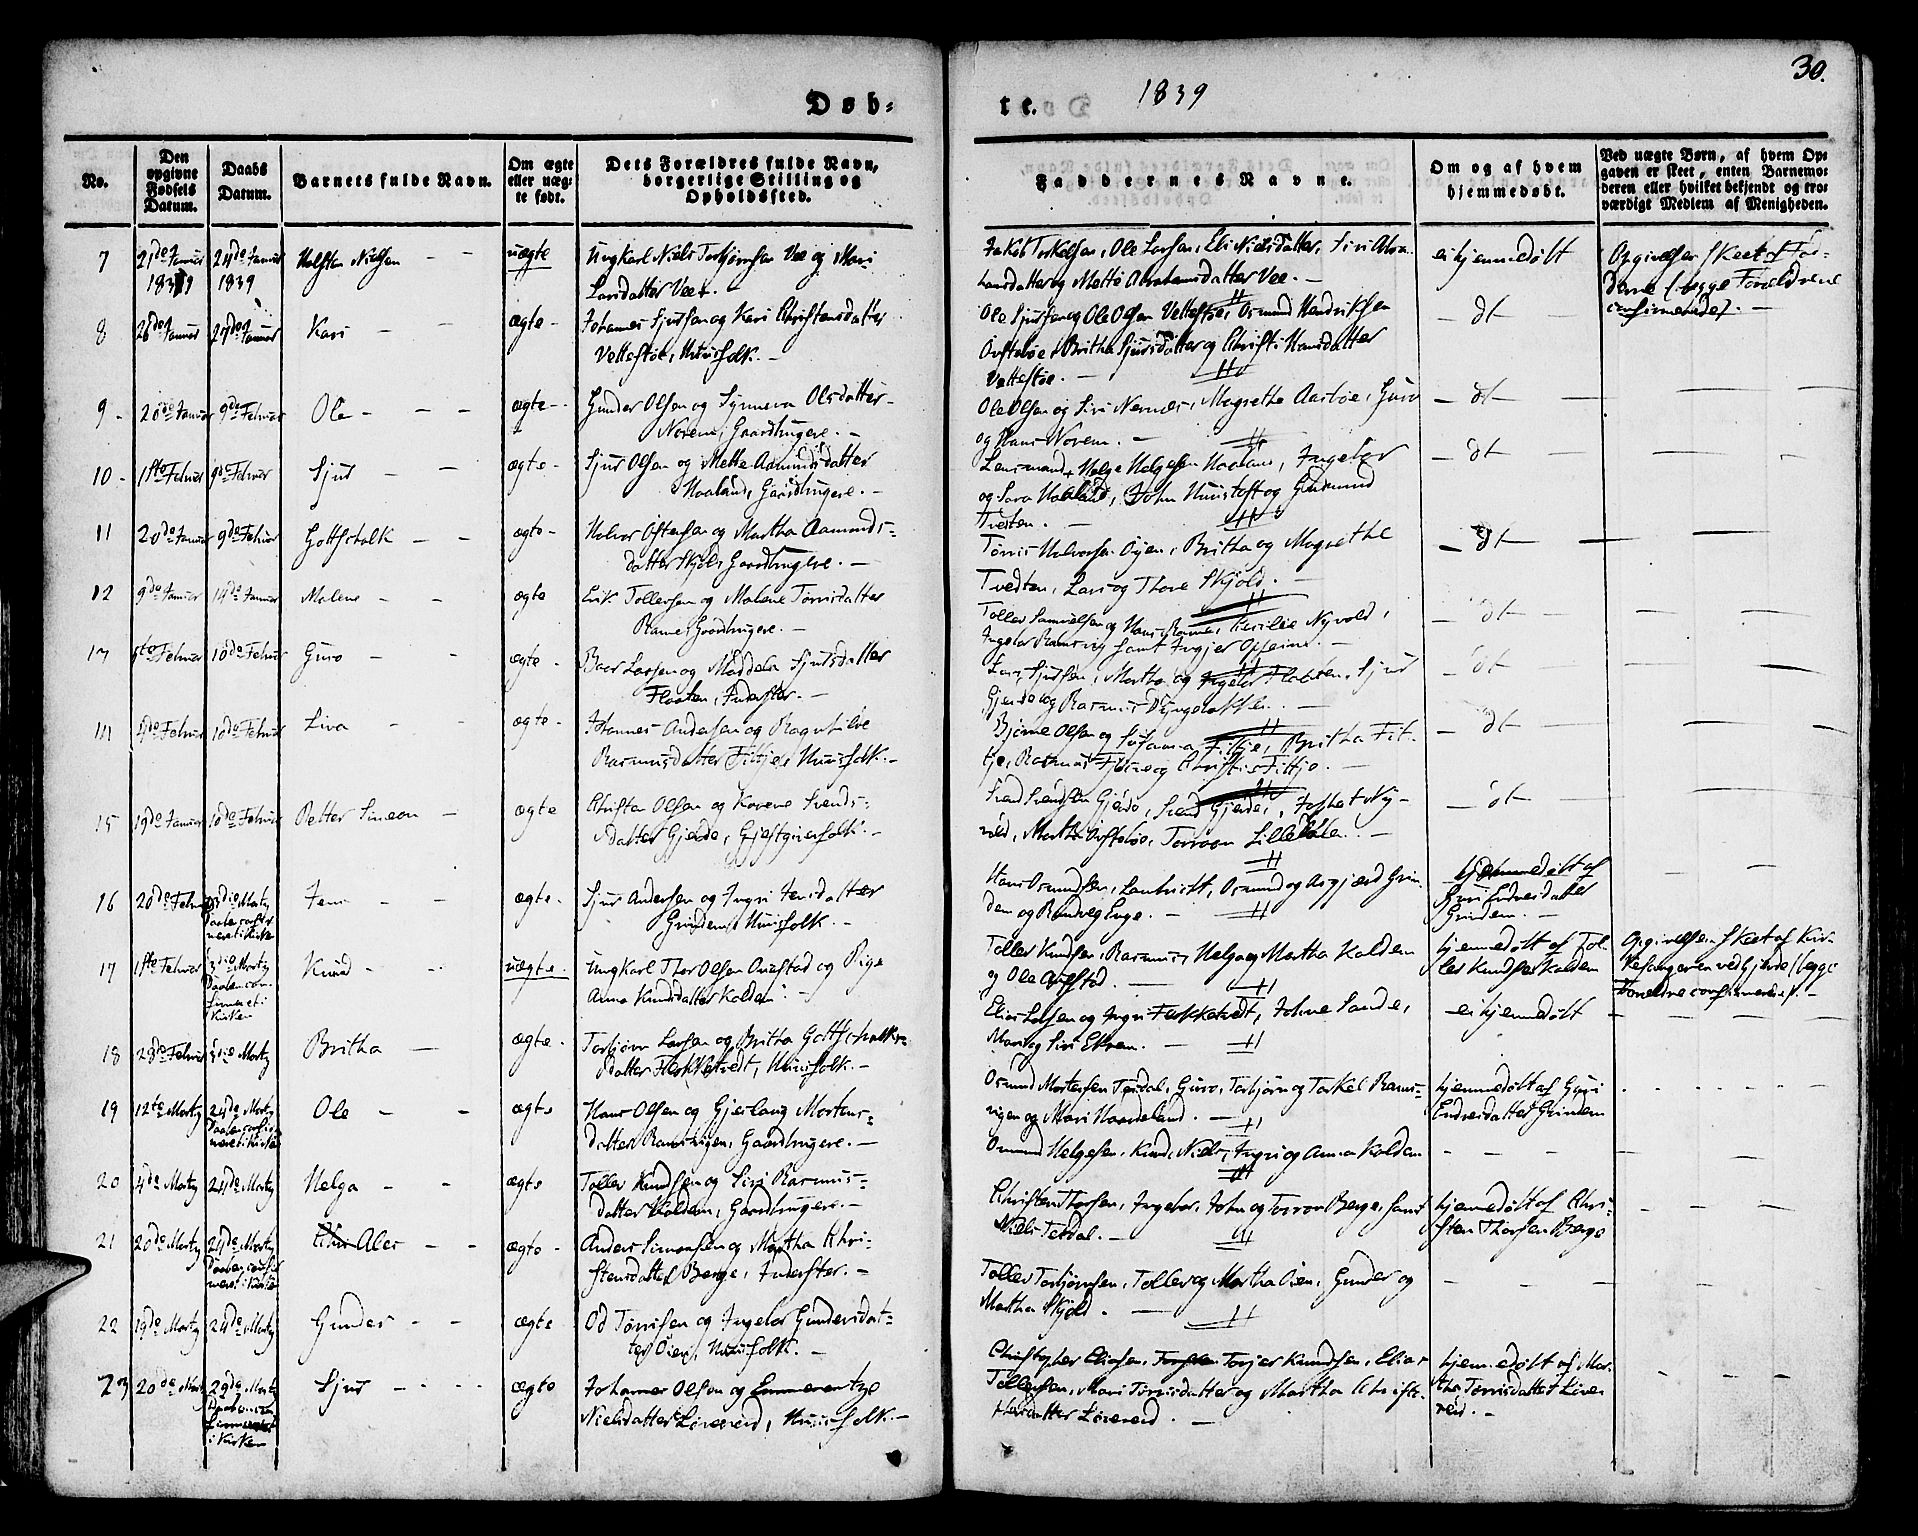 30.
Døb-
te.
1839
No.
Den opgivne Fødsels Datum.
Daabs Datum.
Barnets fulde Navn.
Om ægte eller uægte født.
Dets Forældres fulde Navn, borgerlige Stilling og Opholdssted.
Faddernes Navne.
Om og af hvem hjemmedøbt.
Ved uægte Børn, af hvem Opgaven er skeet, enten Barnemoderen eller hvilket bekjendt og troværdigt Medlem af Menigheden.
7 21de Januar 1839 24de Januar 1839 Nielsen uægte
Ungkarl Niels Torbjørnsen Vee og Mari
Larsdatter Vee. —
Jakob Torkelsen, Ole Larsen, Eli Nielsdatter, Siri Abra-
hamsdatter og Mette Abrahamsdatter Vee. —
ei hjemmedøbt
Opgivelsen skeet af Fa-
deren (begge Forældrene
confirmerede). —
8 26de Januar 27de Januar Kari — — ægte —
Johannes Sjursen og Kari Christensdatter
Vettestøe, Huusfolk. —
Ole Sjursen og Ole Olsen Vettestøe, Osmund Hendriksen
Britha Sjursdatter og Christi Hansdatter
Vettestøe. —
— dt —
9 - 20de Januar 9de Februar Ole — — — ægte —
Gunder Olsen og Synneva Olsdatter
Norem, Gaardbrugere. —
Ole Olsen og Siri Nernæs, Magrethe Aarbøe, Guro
og Hans Norem. —
— dt —
10 - 1ste Februar 9de Februar Sjur — — ægte —
Sjur Olsen og Mette Aamundsdatter
Haaland, Gaardbrugere. —
Lensmand Helge Helgesen Haaland, Ingebor
og Sara Haaland, John Huustoft og Gudmund
Tvedten. —
— dt —
11 20de Januar 9de Februar Gottschalk — — ægte —
Halvor Ostensen og Martha Aamunds-
datter Skjold, Gaardbrugere. —
Tørris Halvorsen Øyen, Britha og Magrethe
Tvedten, Lars og Thore Skjold. —
— dt —
12 9de Januar 14de Januar Malene — — ægte
Erik Tollefsen og Malene Tørrisdatter
Ramne, Gaardbrugere. —
Tollef Samuelsen og Hans Ramne, Cecilie Nyvold,
Ingebor Ramsvig samt Ingjer Opheim. —
— dt —
13 5te Februar 10de Februar Guro — — ægte —
Baar Larsen og Maddela Sjursdatter
Flaaten, Inderster. —
Lars Sjursen, Martha og Ingebor Flaaten, Sjur
Gjerde og Rasmus
— dt —
14 4de Februar 10de Februar Siva — — ægte —
Johannes Andersen og Ragnhilde
Rasmusdatter Fitkje, Huusfolk. —
Bjørne Olsen og Susanna Fitkje, Britha Fit-
kje, Rasmus og Christi Fitkje. —
— dt —
15 19de Januar 10de Februar Petter Simeon — ægte
Christen Olsen og Karen Svends-
datter Gjerde, Gjestgiverfolk. —
Svend Svendsen Gjerde, Svend Gjerde, Ny-
vold, Martha Tarran —
— dt —
16 20de Februar 3die Martz Daaben confirmeret i Kirken Jens — — ægte —
Sjur Andersen og Ingri Jensdatter
Grindem, Huusfolk. —
Hans Osmundsen, Osmund og Asgjærd Grin-
dem og Randveg Enge. —
hjemmedøbt af
Guri Endresdatter
Grindem. —
17 1ste Februar 3die Martz Daaben confirmeret i Kirken Knud — — uægte —
Ungkarl Thor Olsen Aurstad og Pige
Anna Knudsdatter Kaldem. —
Tollef Knudsen, Rasmus, Helga og Martha Kaldem
og Ole Aurstad. —
hjemmedøbt af Tol-
lef Knudsen Kaldem
Opgivelsen skeet af Kir-
kesangeren ved Gjerde (begge
Forældre confirmerede). —
18 28de Februar 3die Martz Britha — ægte —
Torbjørn Larsen og Britha Gottschalks-
datter Huusfolk. —
Elias Larsen og Ingri Johne Sande,
Mari og Siri Ekrem. —
— ei hjemmedøbt —
19 12te Martz 24de Martz Daaben confirmeret i Kirken Ole — — ægte
Hans Olsen og Gjerlaug Mortens-
datter Ramsvigen, Gaardbrugere. —
Osmund Mortensen Tesdal, Guro, Torbjørn og Torkel Rams-
vigen og Mari Haaneland. —
hjemmedøbt af Guri
Endresdatter Grindem
20 4de Martz 24de Martz Helga — — ægte
Tollef Knudsen og Siri Rasmus-
datter Kaldem, Gaardbrugere. —
Osmund Helgesen, Knud, Niels, Ingri og Anna Kaldem
21 20de Martz 24de Martz Daaben confirmeret i Kirken Ales — — ægte —
Anders Simonsen og Martha Chri-
stensdatter Berge, Inderster. —
Christen Thorsen, Ingebor, John og Torvor Berge, samt
Niels Tesdal. —
hjemmedøbt af Chri-
sten Thorsen Berge
22 19de Martz 24de Martz Gunder — — ægte
Od Tørrisen og Ingebor Gundersdat-
ter Øien, Huusfolk. —
Tollef Torbjørnsen, Tollef og Martha Øien, Gunder og
Martha Skjold. —
23 20de Martz 29de Martz Daaben confirmeret i Kirken Sjur — — — ægte
Johannes Olsen og Emmerentze
Nielsdatter Løvereid, Huusfolk. —
Christopher Eliasen, Torjer Knudsen, Elias
Tollefsen, Mari Tørrisdatter og Martha Christ-
datter Løvereid. —
hjemmedøbt af Mar-
tha Tørrisdatter Løve-
reid. —